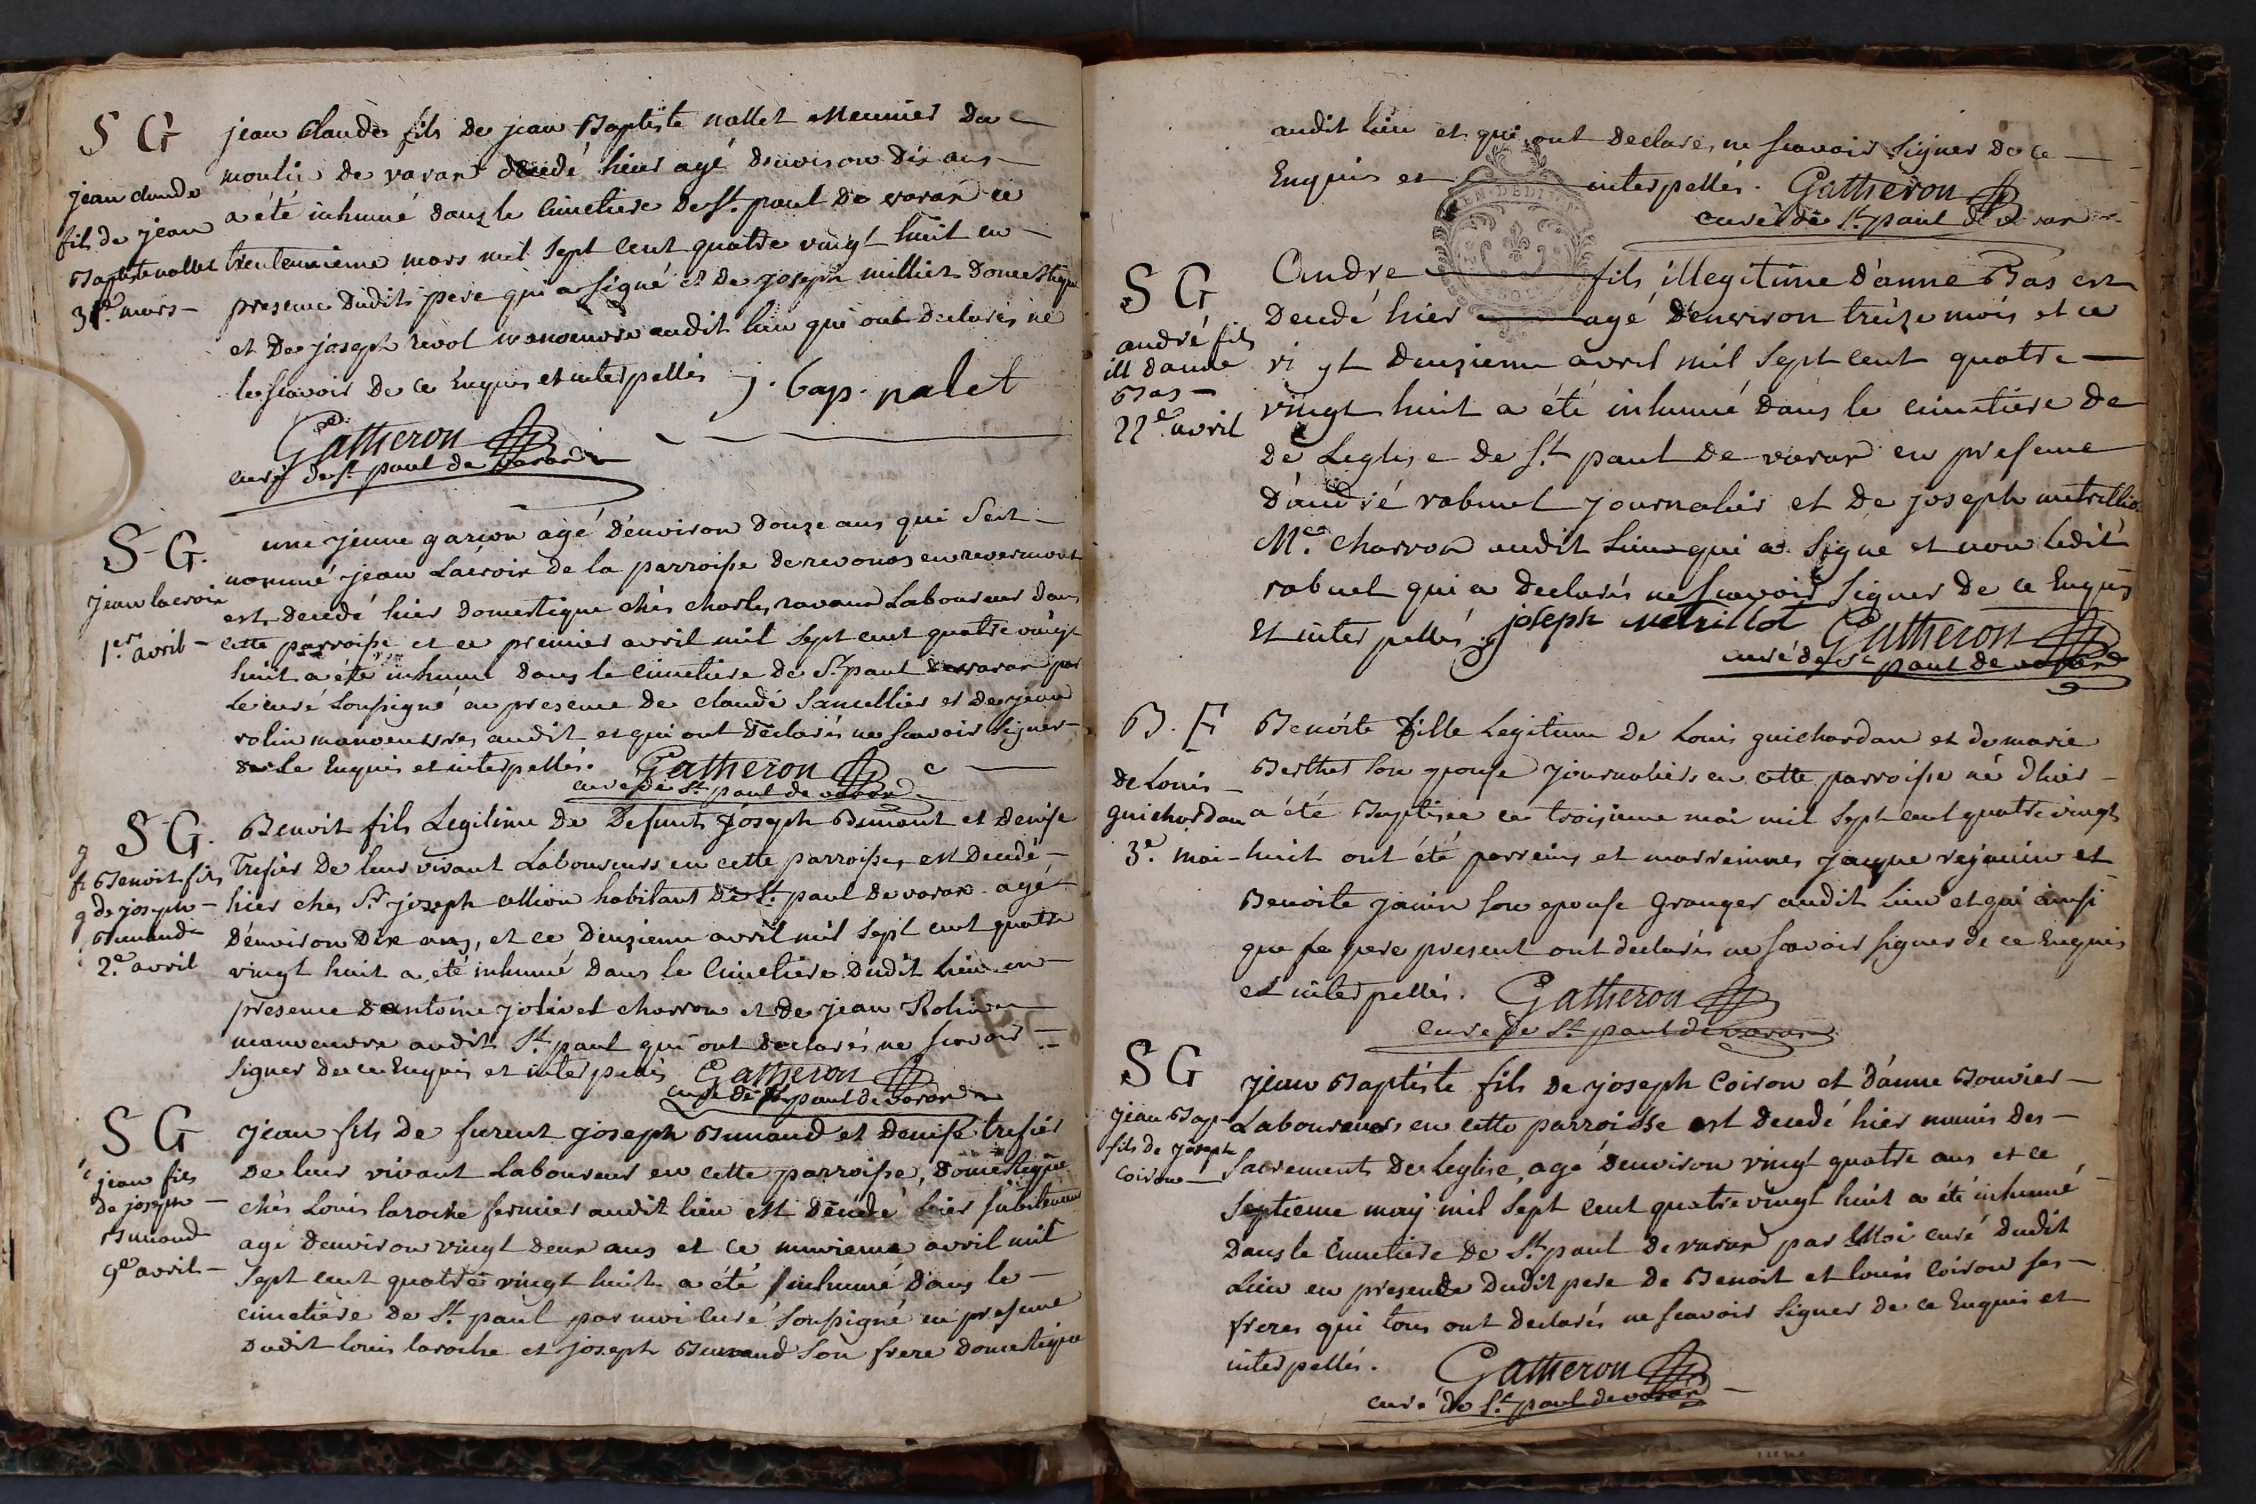 S G
jean claude
fils de jean
Baptiste nallet
31e mars
jean Claude fils de jean Baptiste nallet Meunier du
moulin de varax décédé hier agé denviron dix ans
a été inhumé dans le Cimetiere de St. paul de varax ce
trenteunieme mars mil sept cent quatre vingt huit en
presence dudit pere qui a signé et de joseph millier domestique
et de joseph revol manoeuvre audit lieu qui ont declarés ne
le scavoir de ce Enquis et interpellés j. bap. nalet
Gatheron
curé de St. paul de varax
S. G.
jean lacroix
1er. avril
une jeune garçon agé d'environ douze ans qui s'est
nommé jean Lacroix de la parroisse de revonas en revermont
est decedé hier domestique chés charles ravaud Laboureur dans
cette parroisse et ce premier avril mil sept cent quatre vingt
huit a été inhumé dans le Cimetiere de St. paul de varax par
Le curé soussigné en presence de claude Sancellier et de jean
rolin manoeuvres audit et qui ont déclarés ne scavoir signer
de ce Enquis et interpellés. Gatheron
curé de St. paul de varax
S G.
Benoit fils
de joseph
Bunand
2e. avril
Benoit fils Legitime de Defunts joseph Bunant et denise
Trefier de leur vivant Laboureurs en cette parroisse, est Decedé
hier ches Sr. joseph allion habitant de St. paul de varax agé
d'environ Dix ans, et ce deuzieme avril mil sept cent quatre
vingt huit a été inhumé dans le Cimetiere dudit lieu en
presence d'antoine jolivet charron et de jean Rolin
manoeuvre audit St. paul qui ont declarés ne scavoir
signer de ce Enquis et interpellés Gatheron
curé de St. paul de varax
S G
jean fils
de joseph
Bunand
9e avril
jean fils de furent joseph Bunand et denise trefier
de leur vivant Laboureur en cette parroisse, domestique
chés Louis laroche fermier audit lieu est décédé hier subitement
agé denviron vingt deux ans et ce neuvieme avril mil
sept cent quatre vingt huit a été inhumé dans le
cimetiere de St. paul par moi curé soussigné en presence
dudit louis laroche et joseph Bunand son frere domestique
audit lieu et qui ont declarés ne scavoir signer de ce
Enquis et interpellés. Gatheron
curé de St. paul de varax
S G
andré fils
ill d'anne
Bas
22e avril
Andre fils illegitime d'anne Bas est
Decedé hier agé d'environ treize mois et ce
vingt deuzieme avril mil sept cent quatre
vingt huit a été inhumé dans le cimetiere de
de Leglise de St. paul de varax en presence
d'andré rabuel journalier et de joseph metrillio
Me. charron audit lieu qui a signé et non ledit
rabuel qui a declarés ne scavoir signer de ce Enquis
et interpellés. joseph metrillot Gatheron
curé de St paul de varax
B. F
de Louis
guichardan
3e. mai
Benoite fille Legitime de Louis guichardan et de marie
Berthet son epouse journaliers en cette parroisse né d'hier
a été Baptisée ce troisieme mai mil sept cent quatre vingt
huit ont été parreins et marreinnes jacque rejanin et
Benoite janin son epouse Granger audit lieu et qui ainsi
que le pere present ont declarés ne scavoir signer de ce Enquis
et interpellés. Gatheron
curé de St. paul de varax
S G
jean Bap
fils de joseph
Coiron
jean Baptiste fils de joseph Coiron et d'anne Bouvier
Laboureurs en cette parroisse est decedé hier munis des
sacrements de Leglise, agé denviron vingt quatre ans et ce
septieme may mil sept cent quatre vingt huit a été inhumé
dans le Cimetiere de St. paul de varax par Moi curé dudit
Lieu en presence dudit pere de Benoit et louis Coiron ses
freres qui tous ont declarés ne scavoir signer de ce Enquis et
interpellés. Gatheron
curé de St. paul de varax